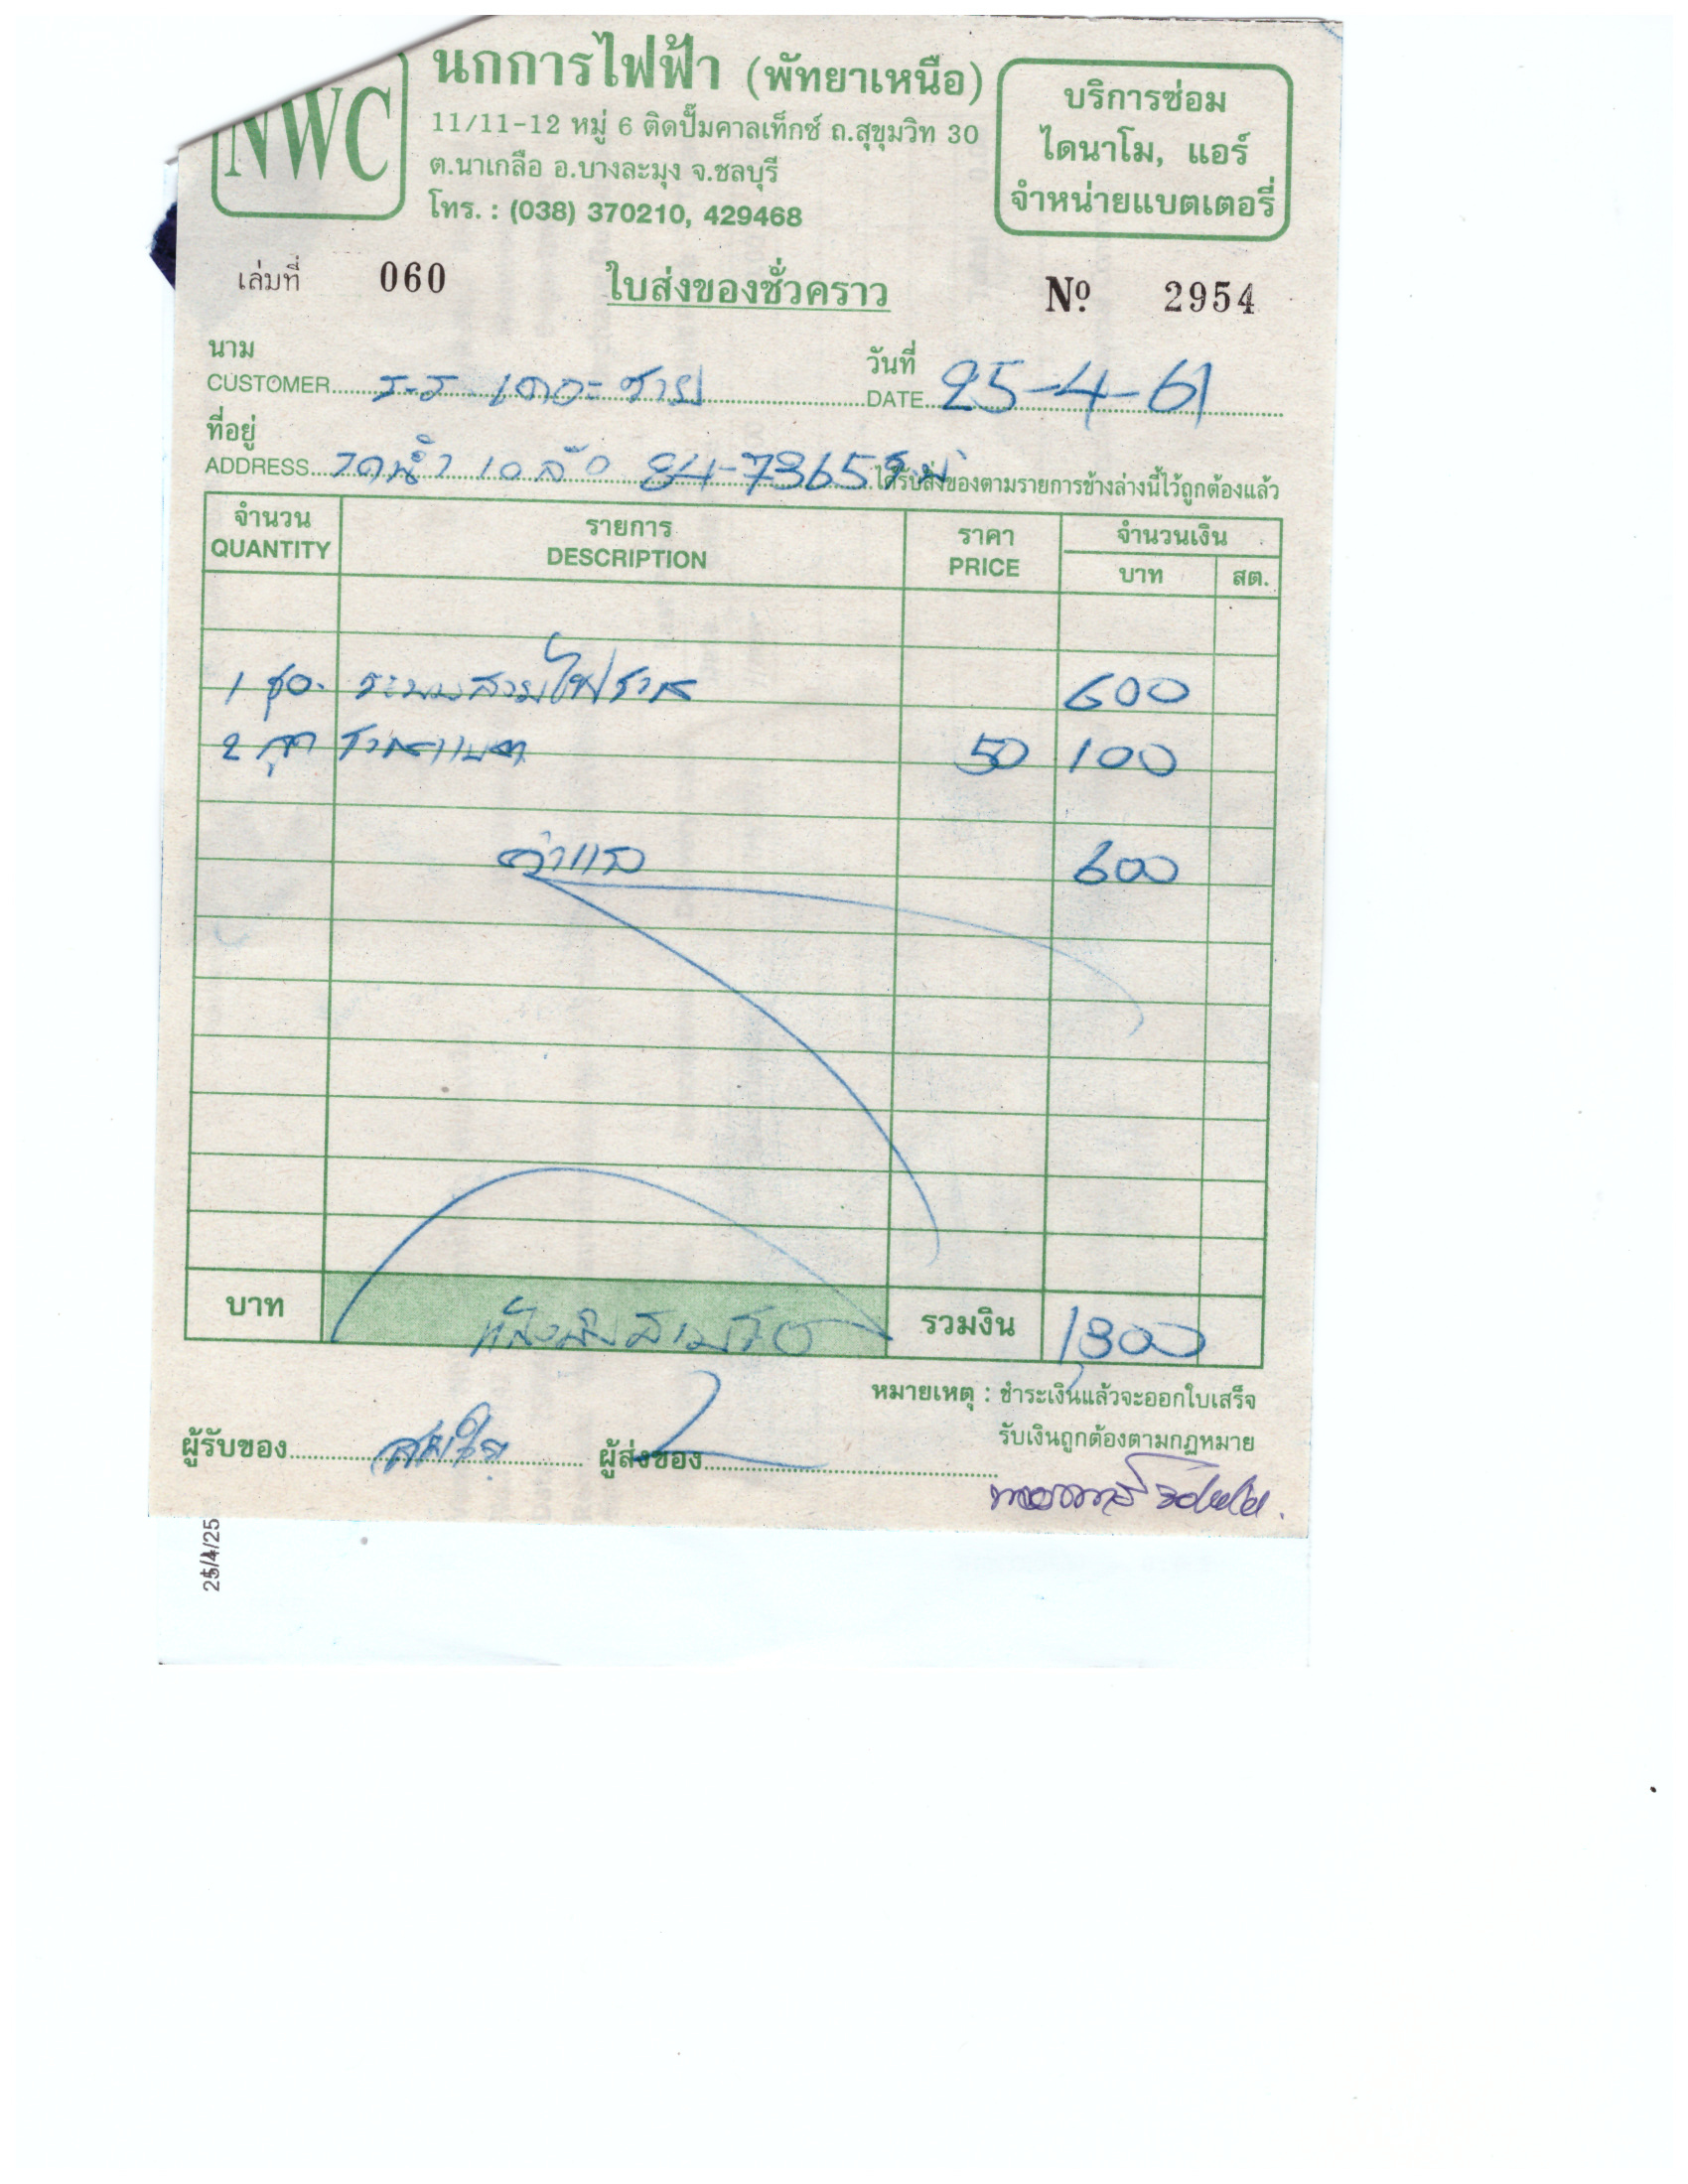 NWC
นกการไฟฟ้า (พัทยาเหนือ)
11/11-12 หมู่ 6 ติดปั๊มคาลเท็กซ์ ถ.สุขุมวิท 30
ต.นาเกลือ อ.บางละมุง จ.ชลบุรี
โทร. : (038) 370210, 429468
บริการซ่อม
ไดนาโม, แอร์
จำหน่ายแบตเตอรี่
เล่มที่ 060
ใบส่งของชั่วคราว
Nº 2954
นาม
CUSTOMER ร.ร เดอะ
วันที่
DATE 25-4-61
ที่อยู่
ADDRESS รดน้ำ 10 ล้อ 84-7365
ได้รับสิ่งของตามรายการข้างล่างนี้ไว้ถูกต้องแล้ว
จำนวน รายการ ราคา จำนวนเงิน
QUANTITY DESCRIPTION PRICE บาท สต.
1 ชุด ระบบสายไฟ 600
2 50 100
ค่าแรง 600
บาท รวมเงิน 1300
หมายเหตุ : ชำระเงินแล้วจะออกใบเสร็จ
รับเงินถูกต้องตามกฎหมาย
ผู้รับของ ผู้ส่งของ
25/4/25